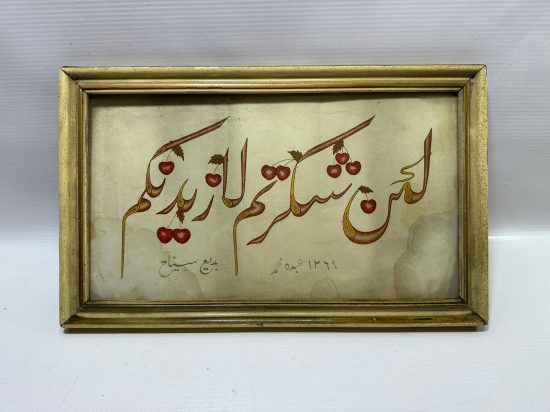 لئن شكرتم لازيدنكم
١٣٦٩ عبده محمد
بديع